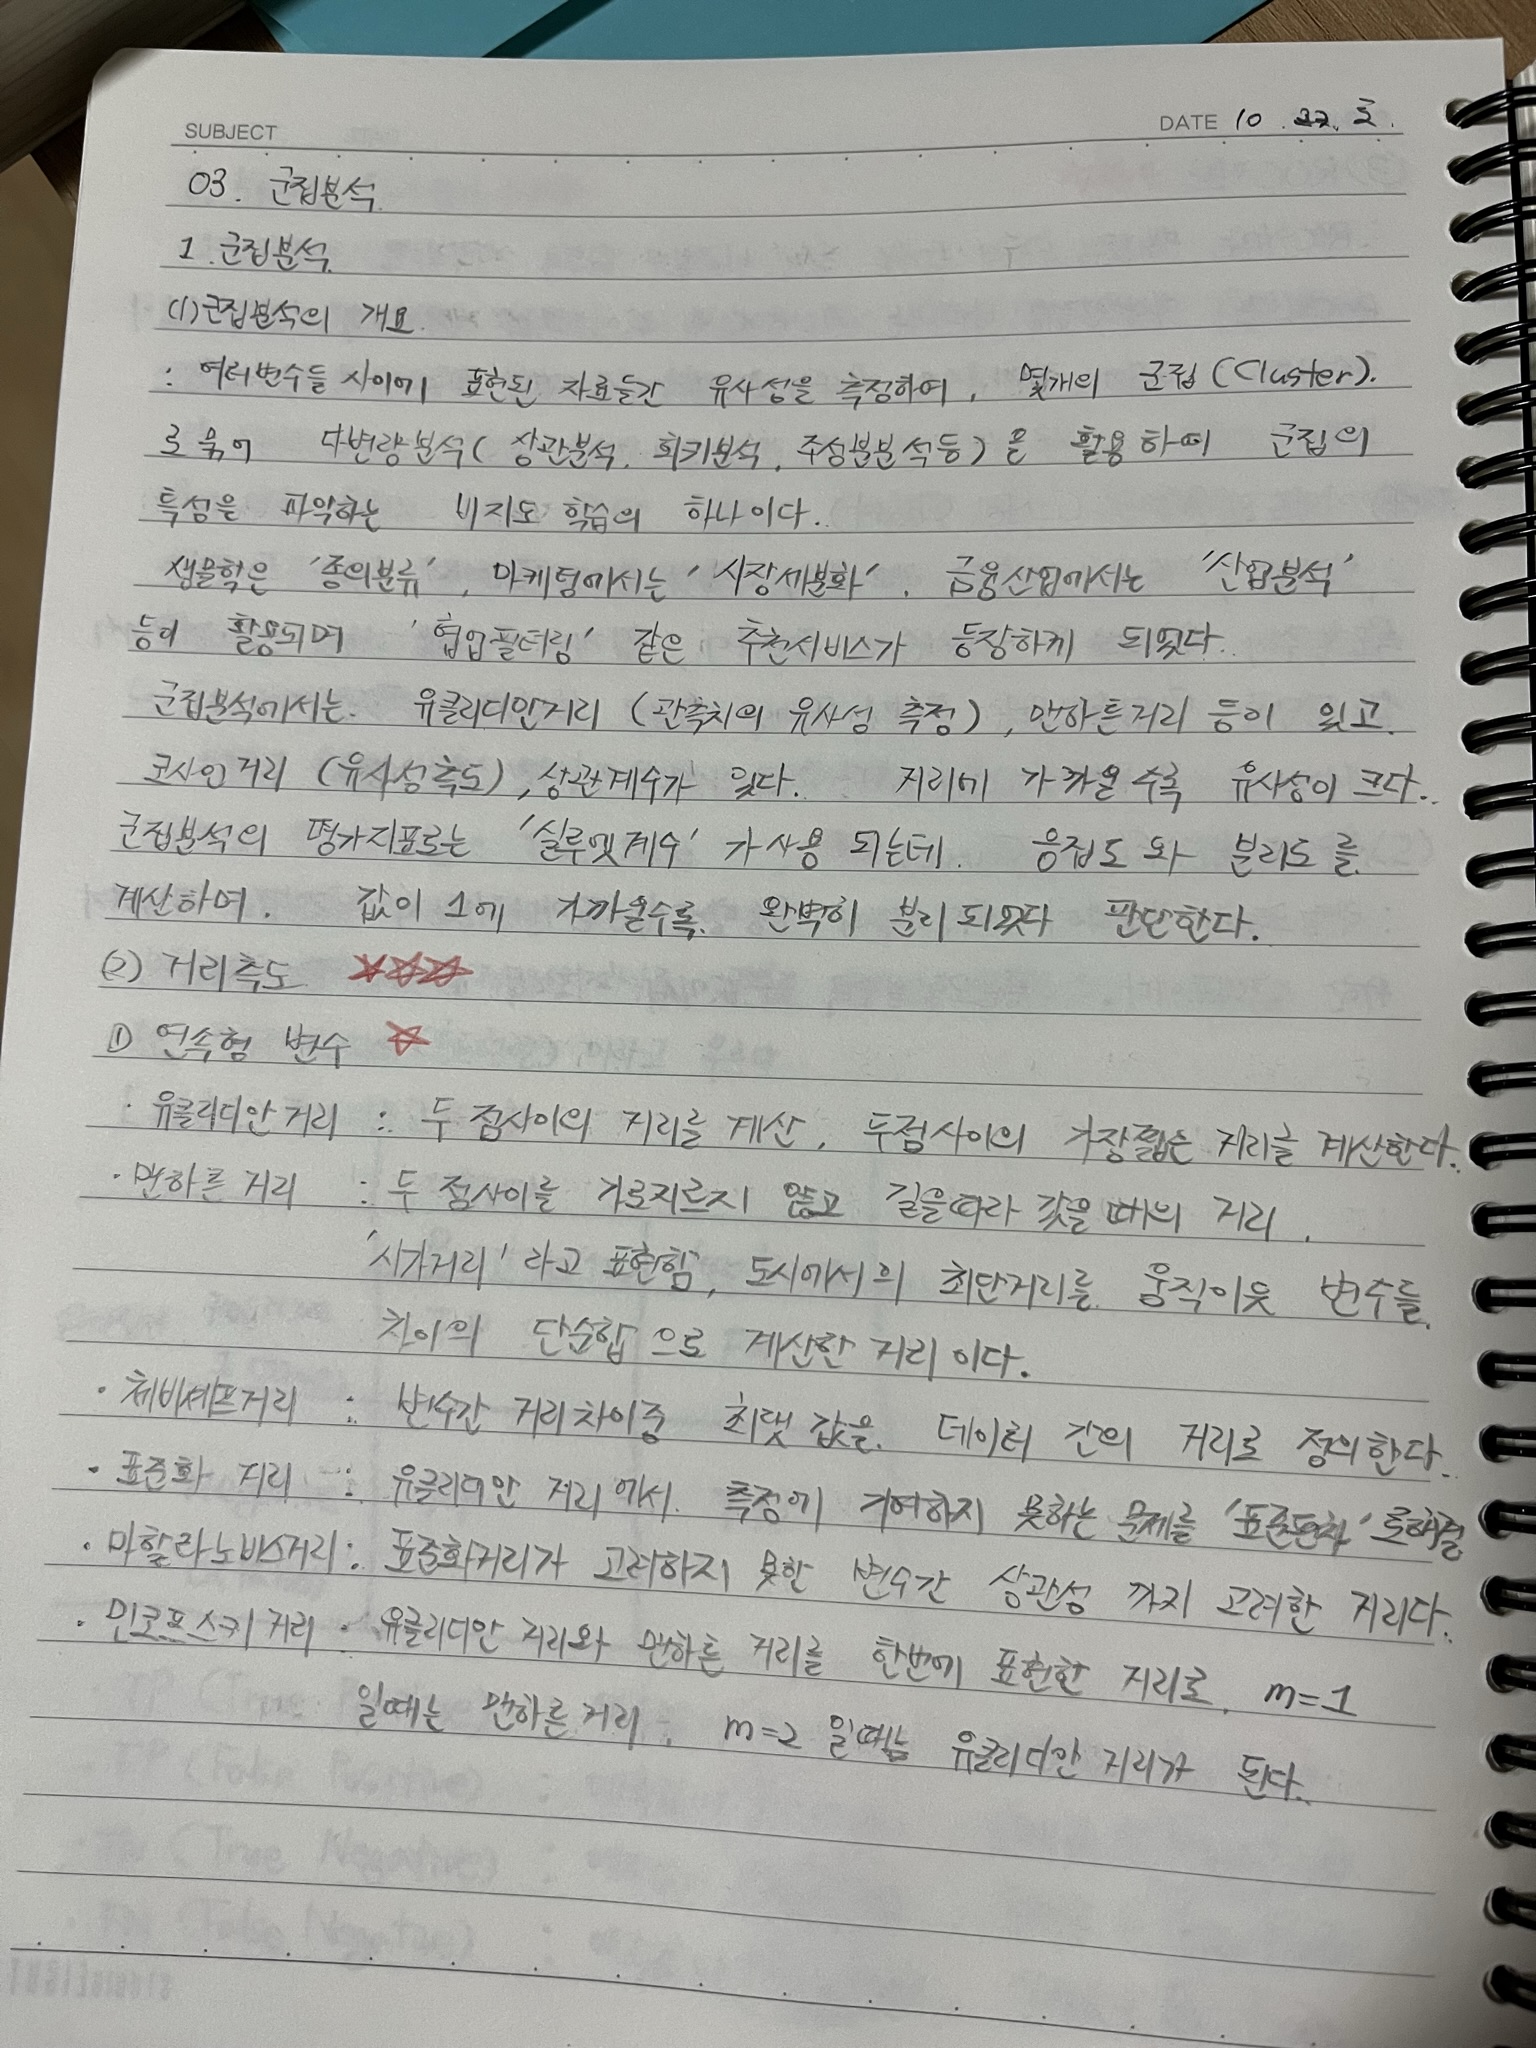 SUBJECT
DATE 10 . 22. 토.
03. 군집분석
1. 군집분석
(1) 군집분석의 개요
: 여러변수들 사이에 표현된 자료들간 유사성을 측정하여, 몇개의 군집(Cluster).
로 묶어 다변량분석(상관분석, 회키분석, 주성분분석등)을 활용하여 군집의
특성을 파악하는 비지도 학습의 하나이다.
생물학은 '종의분류', 마케팅에서는 '시장세분화', 금융산업에서는 '산업분석'
등이 활용되며 '협업필터링' 같은 추천서비스가 등장하게 되었다.
군집분석에서는 유클리디안거리 (관측치의 유사성 측정), 만하튼거리 등이 있고
코사인거리 (유사성측도), 상관계수가 있다. 거리에 가까울수록 유사성이 크다.
군집분석의 평가지표로는 '실루엣계수'가 사용 되는데. 응집도와 분리도를
계산하며. 값이 1에 가까울수록 완벽히 분리되었다 판단한다.
(2) 거리측도 ☆☆☆
① 연속형 변수 ☆
· 유클리디안거리 : 두 점사이의 거리를 계산, 두점사이의 가장짧은 거리를 계산한다.
· 만하튼 거리 : 두 점사이를 가로지르지 않고 길을따라 갔을때의 거리,
'시가거리' 라고 표현함, 도시에서의 최단거리를 움직이듯 변수들
차이의 단순합으로 계산한 거리이다.
· 체비셰프거리 : 변수간 거리차이중 최댓값을 데이터 간의 거리로 정의한다.
· 표준화 거리 : 유클리디안 거리에서 측정에 기여하지 못하는 문제를 '표준편차'로해결
· 마할라노비스거리 : 표준화거리가 고려하지 못한 변수간 상관성 까지 고려한 거리다.
· 민코프스키 거리 · 유클리디안 거리와 만하튼 거리를 한번에 표현한 거리로, m=1
일때는 만하튼거리, m=2 일때는 유클리디안 거리가 된다.